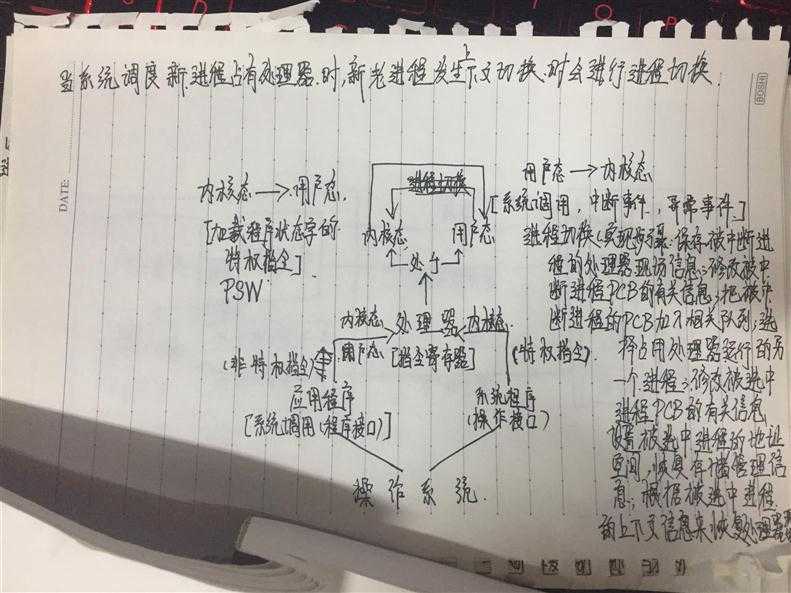 当系统调度新进程占有处理器时,新老进程发生上下文切换.时会进行进程切换.
DATE:
内核态→用户态.
[加载程序状态字的
特权指令]
PSW
进程切换
内核态
用户态
处于
用户态→内核态
[系统调用,中断事件,异常事件.]
进程切换(实现步骤:保存被中断进
程的处理器现场信息;修改被中
断进程PCB的有关信息;把被中
断进程的PCB加入相关队列;选
择占用处理器运行的另
一个进程;修改被选中
进程PCB的有关信息
设置被选中进程的地址
空间,恢复存储管理信
息;根据被选中进程
的上下文信息来恢复处理器
内核态 处理器 内核态.
(非特权指令) 用户态 [指令寄存器] (特权指令).
应用程序
[系统调用(程序接口)]
系统程序
(操作接口)
操作系统.